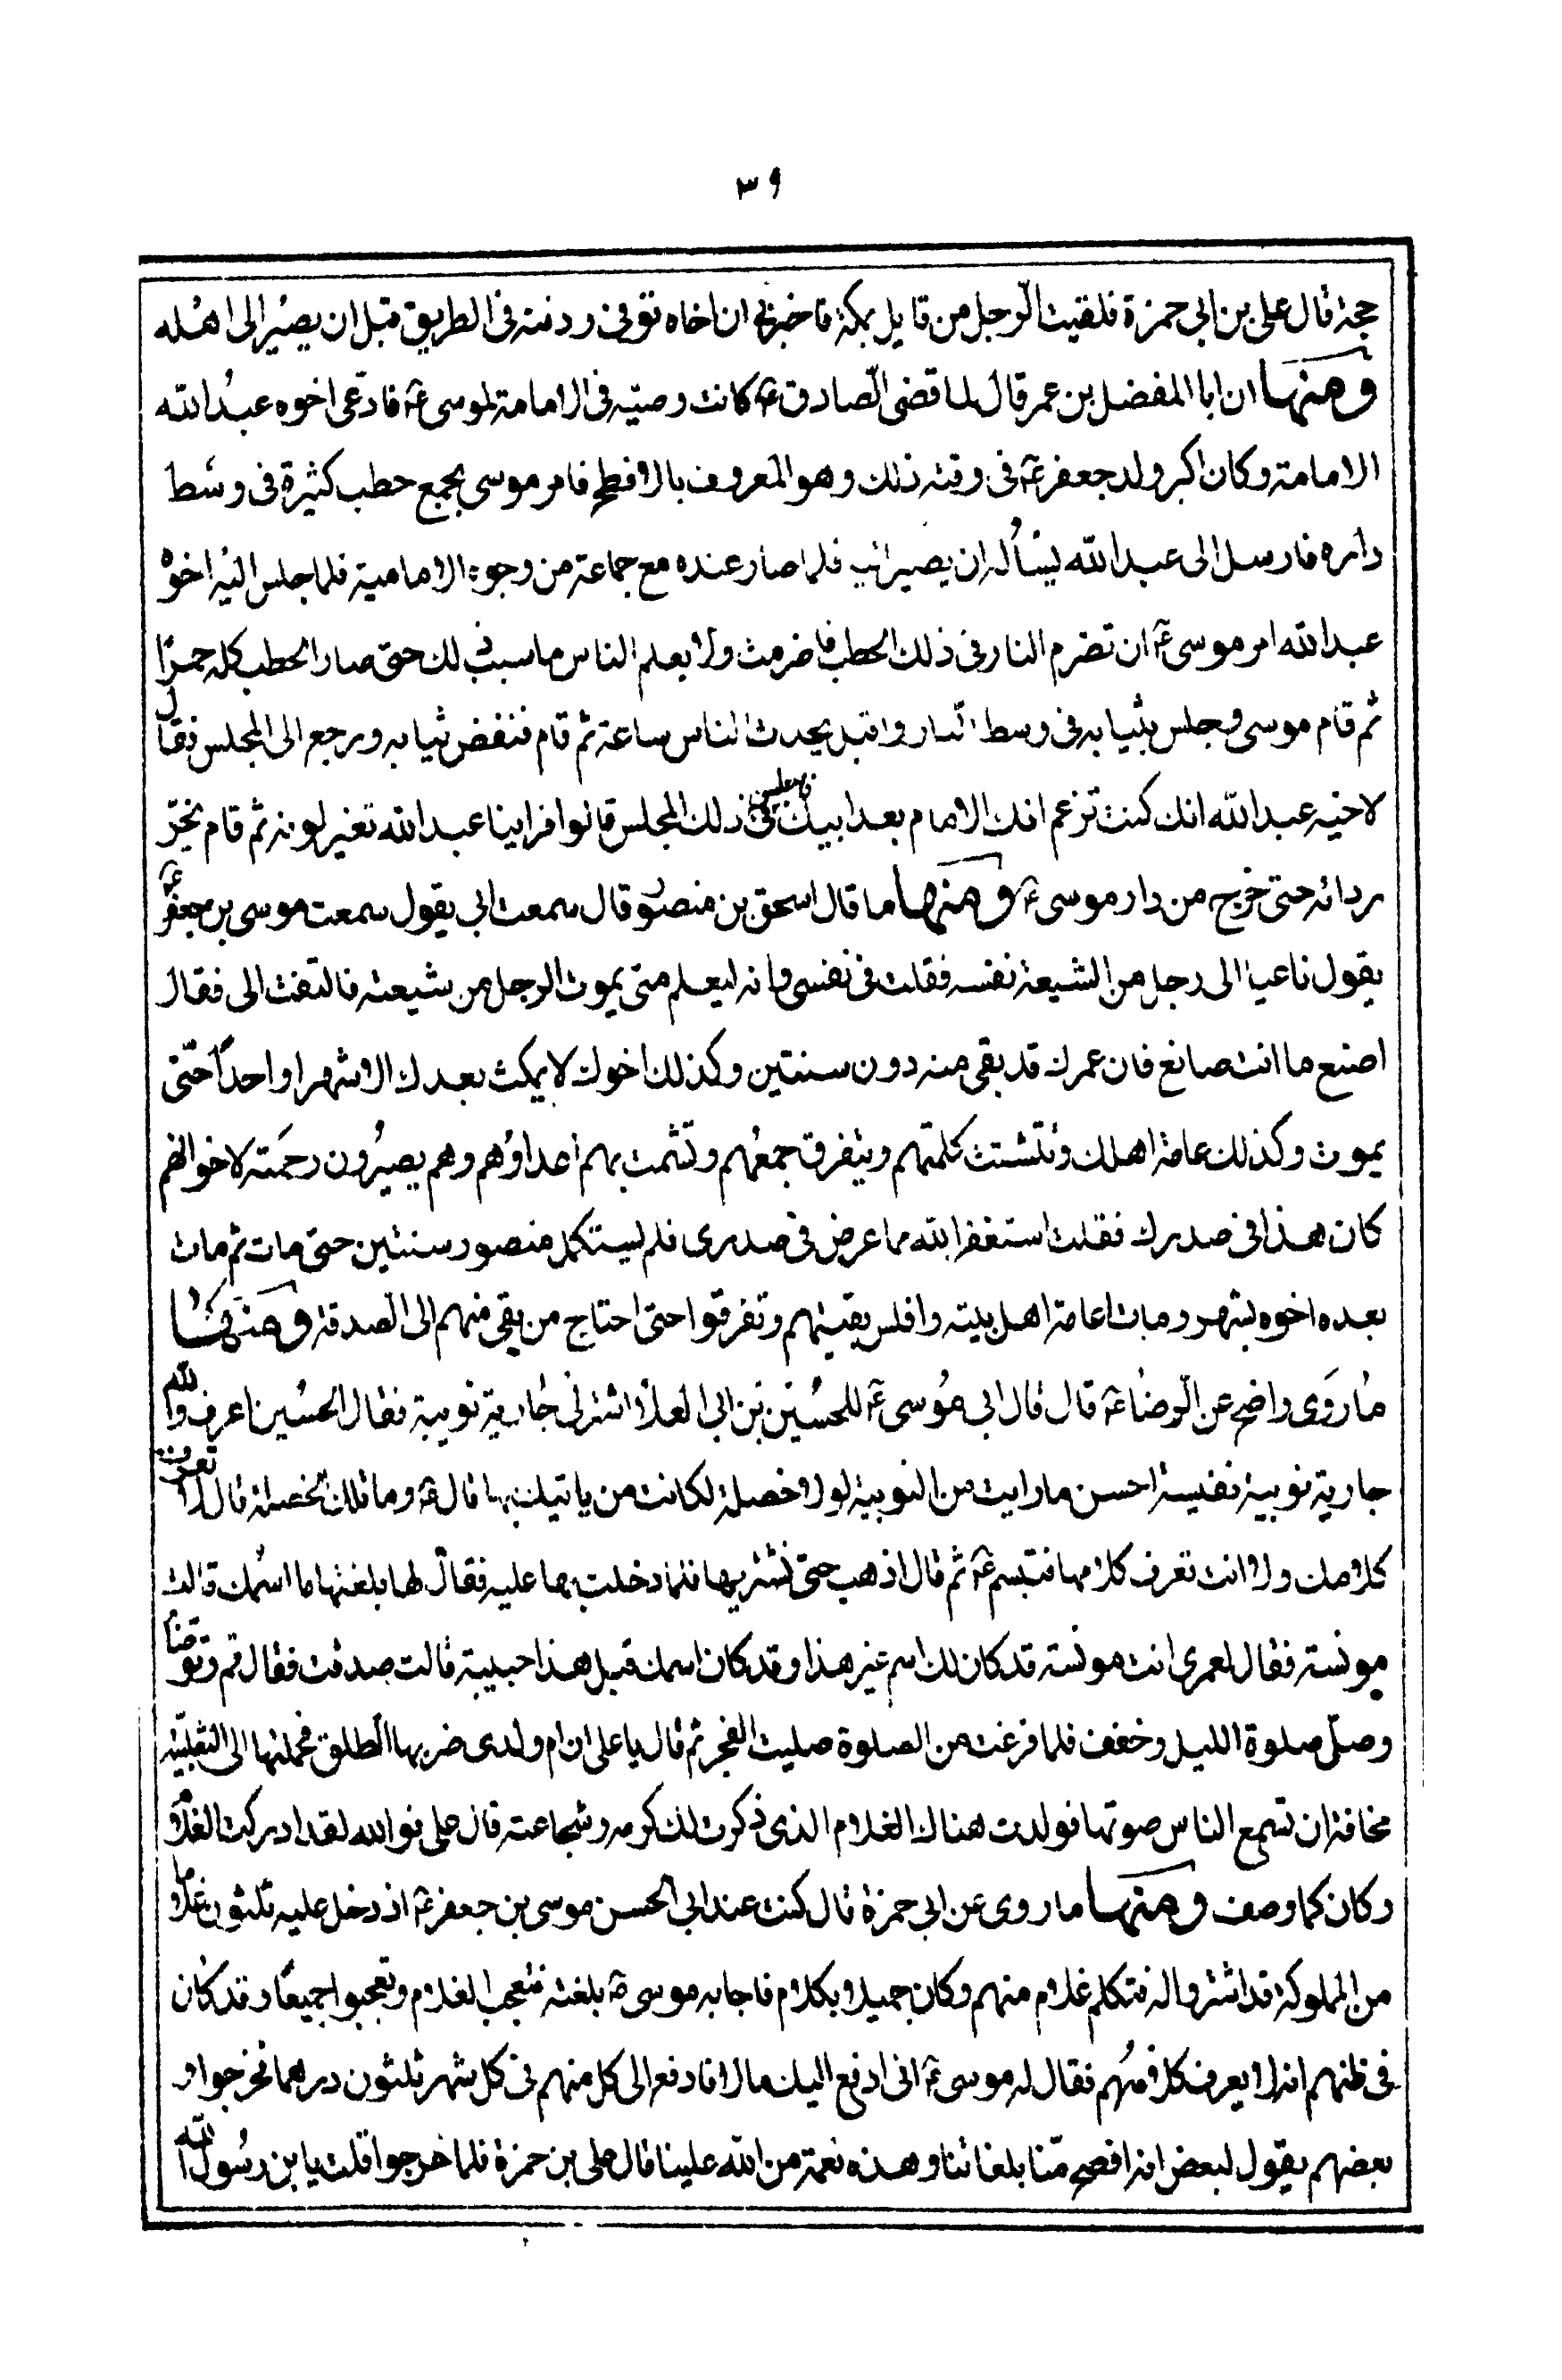 ٣٩
حجة قال على بن ابى حمزة فلقيت الرجل من قابل بمكة فاخبرنى ان اخاه توفى ودفنه فى الطريق قبل ان يصير الى اهله
ومنها ان ابا المفضل بن عمر قال لما قضى الصادق ع كانت وصيته فى الامامة لموسى ع فادعى اخوه عبد الله
الامامة وكان اكبر ولد جعفر ع فى وقته ذلك وهو المعروف بالافطح فامر موسى بجمع حطب كثيرة فى وسط
داره فارسل الى عبد الله يسأله ان يصير اليه فلما صار عنده مع جماعة من وجوه الامامية فلما جلس اليه اخوه
عبد الله امر موسى ع ان تضرم النار فى ذلك الحطب فاضرمت ولا يعلم الناس ما سبب ذلك حتى صار الحطب كله جمرًا
ثم قام موسى وجلس بثيابه فى وسط النار واقبل يحدث الناس ساعة ثم قام فنفض ثيابه ورجع الى المجلس فقال
لاخيه عبد الله انك كنت تزعم انك الامام بعد ابيك فاجلس فى ذلك المجلس قالوا فراينا عبد الله تغير لونه ثم قام يجرّ
ردائه حتى خرج من دار موسى ع ومنها ما قال اسحق بن منصور قال سمعت ابى يقول سمعت موسى بن جعفر ع
يقول ناعيا الى رجل من الشيعة نفسه فقلت فى نفسى وانه ليعلم متى يموت الرجل من شيعته فالتفت الى فقال
اصنع ما انت صانع فان عمرك قد بقى منه دون سنتين وكذلك اخوك لا يمكث بعدك الا شهرا واحدًا حتى
يموت وكذلك عامة اهلك وتتشتت كلمتهم ويتفرق جمعهم وتشمت بهم اعداؤهم وهم يصيرون رحمة لاخوانهم
كان هذا فى صدرك فقلت استغفر الله مما عرض فى صدرى فلم يستكمل منصور سنتين حتى مات ثم مات
بعده اخوه بشهر ومات عامة اهل بيته وافلس بقيتهم وتفرقوا حتى احتاج من بقى منهم الى الصدقة ومنها
ما روى واضح عن الرضا ع قال قال ابى موسى ع للحسين بن ابى العلا اشتر لى جارية نوبية فقال الحسين اعرف والله
جارية نوبية نفيسة احسن ما رايت من النوبية لولا خصلة لكانت من ياتيك بها قال ع وما تلك الخصلة قال لا تعرف
كلامك ولا انت تعرف كلامها فتبسم ع ثم قال اذهب حتى تشتريها فلما دخلت بها عليه فقال لها بلغتها ما اسمك قالت
مونسة فقال لعمرى انت مونسة قد كان لك اسم غير هذا وقد كان اسمك قبل هذا حبيبة قالت صدقت فقال قم وتوضا
وصلّ صلوة الليل وخفف فلما فرغت من الصلوة صليت الفجر ثم قال يا على ان ام ولدى ضربها الطلق فحملتها الى الثعلبية
مخافة ان تسمع الناس صوتها فولدت هناك الغلام الذى ذكرت لك كرمه وشجاعته قال على فوالله لقد ادركت الغلام
وكان كما وصف ومنها ما روى عن ابى حمزة قال كنت عند ابى الحسن موسى بن جعفر ع اذ دخل عليه ثلثون غلاما
من المملوكة قد اشتروا له فتكلم غلام منهم وكان جميلا بكلام فاجابه موسى ع بلغته فتعجب الغلام وتعجبوا جميعًا وقد كان
فى ظنهم انه لا يعرف كلامهم فقال له موسى ع انى ادفع اليك مالا فادفع الى كل منهم فى كل شهر ثلثون درهما فخرجوا و
بعضهم يقول لبعض انه افصح منا بلغاتنا وهذه نعمة من الله علينا قال على بن حمزة فلما خرجوا قلت يا بن رسول الله